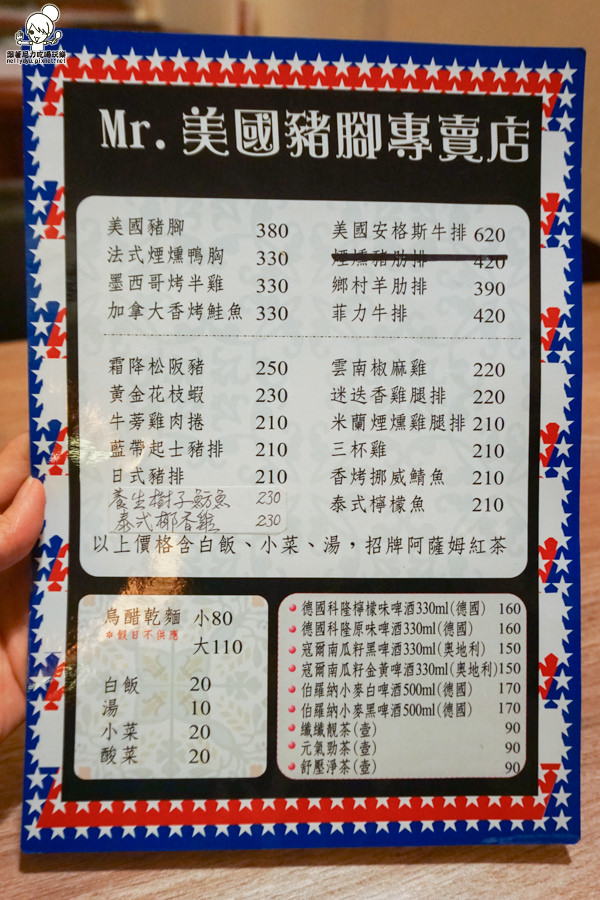 跟著尼力吃喝玩樂
nellydyu.pixnet.net
Mr. 美國豬腳專賣店
美國豬腳 380
法式煙燻鴨胸 330
墨西哥烤半雞 330
加拿大香烤鮭魚 330
美國安格斯牛排 620
煙燻豬肋排 420
鄉村羊肋排 390
菲力牛排 420
霜降松阪豬 250
黃金花枝蝦 230
牛蒡雞肉捲 210
藍帶起士豬排 210
日式豬排 210
養生樹子魴魚 230
泰式椰香雞 230
雲南椒麻雞 220
迷迭香雞腿排 220
米蘭煙燻雞腿排 210
三杯雞 210
香烤挪威鯖魚 210
泰式檸檬魚 210
以上價格含白飯、小菜、湯，招牌阿薩姆紅茶
烏醋乾麵 小80
※假日不供應
大110
白飯 20
湯 10
小菜 20
酸菜 20
德國科隆檸檬味啤酒330ml(德國) 160
德國科隆原味啤酒330ml(德國) 160
寇爾南瓜籽黑啤酒330ml(奧地利) 150
寇爾南瓜籽金黃啤酒330ml(奧地利) 150
伯羅納小麥白啤酒500ml(德國) 170
伯羅納小麥黑啤酒500ml(德國) 170
纖纖靚茶(壺) 90
元氣勁茶(壺) 90
舒壓淨茶(壺) 90